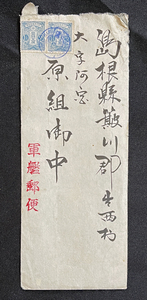 島根縣簸川郡出西村
大字阿宮
原組御中
軍艦郵便